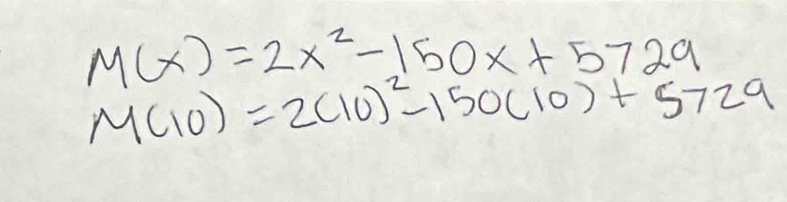 M(x) = 2x² - 150x + 5729
M(10) = 2(10)² - 150(10) + 5729